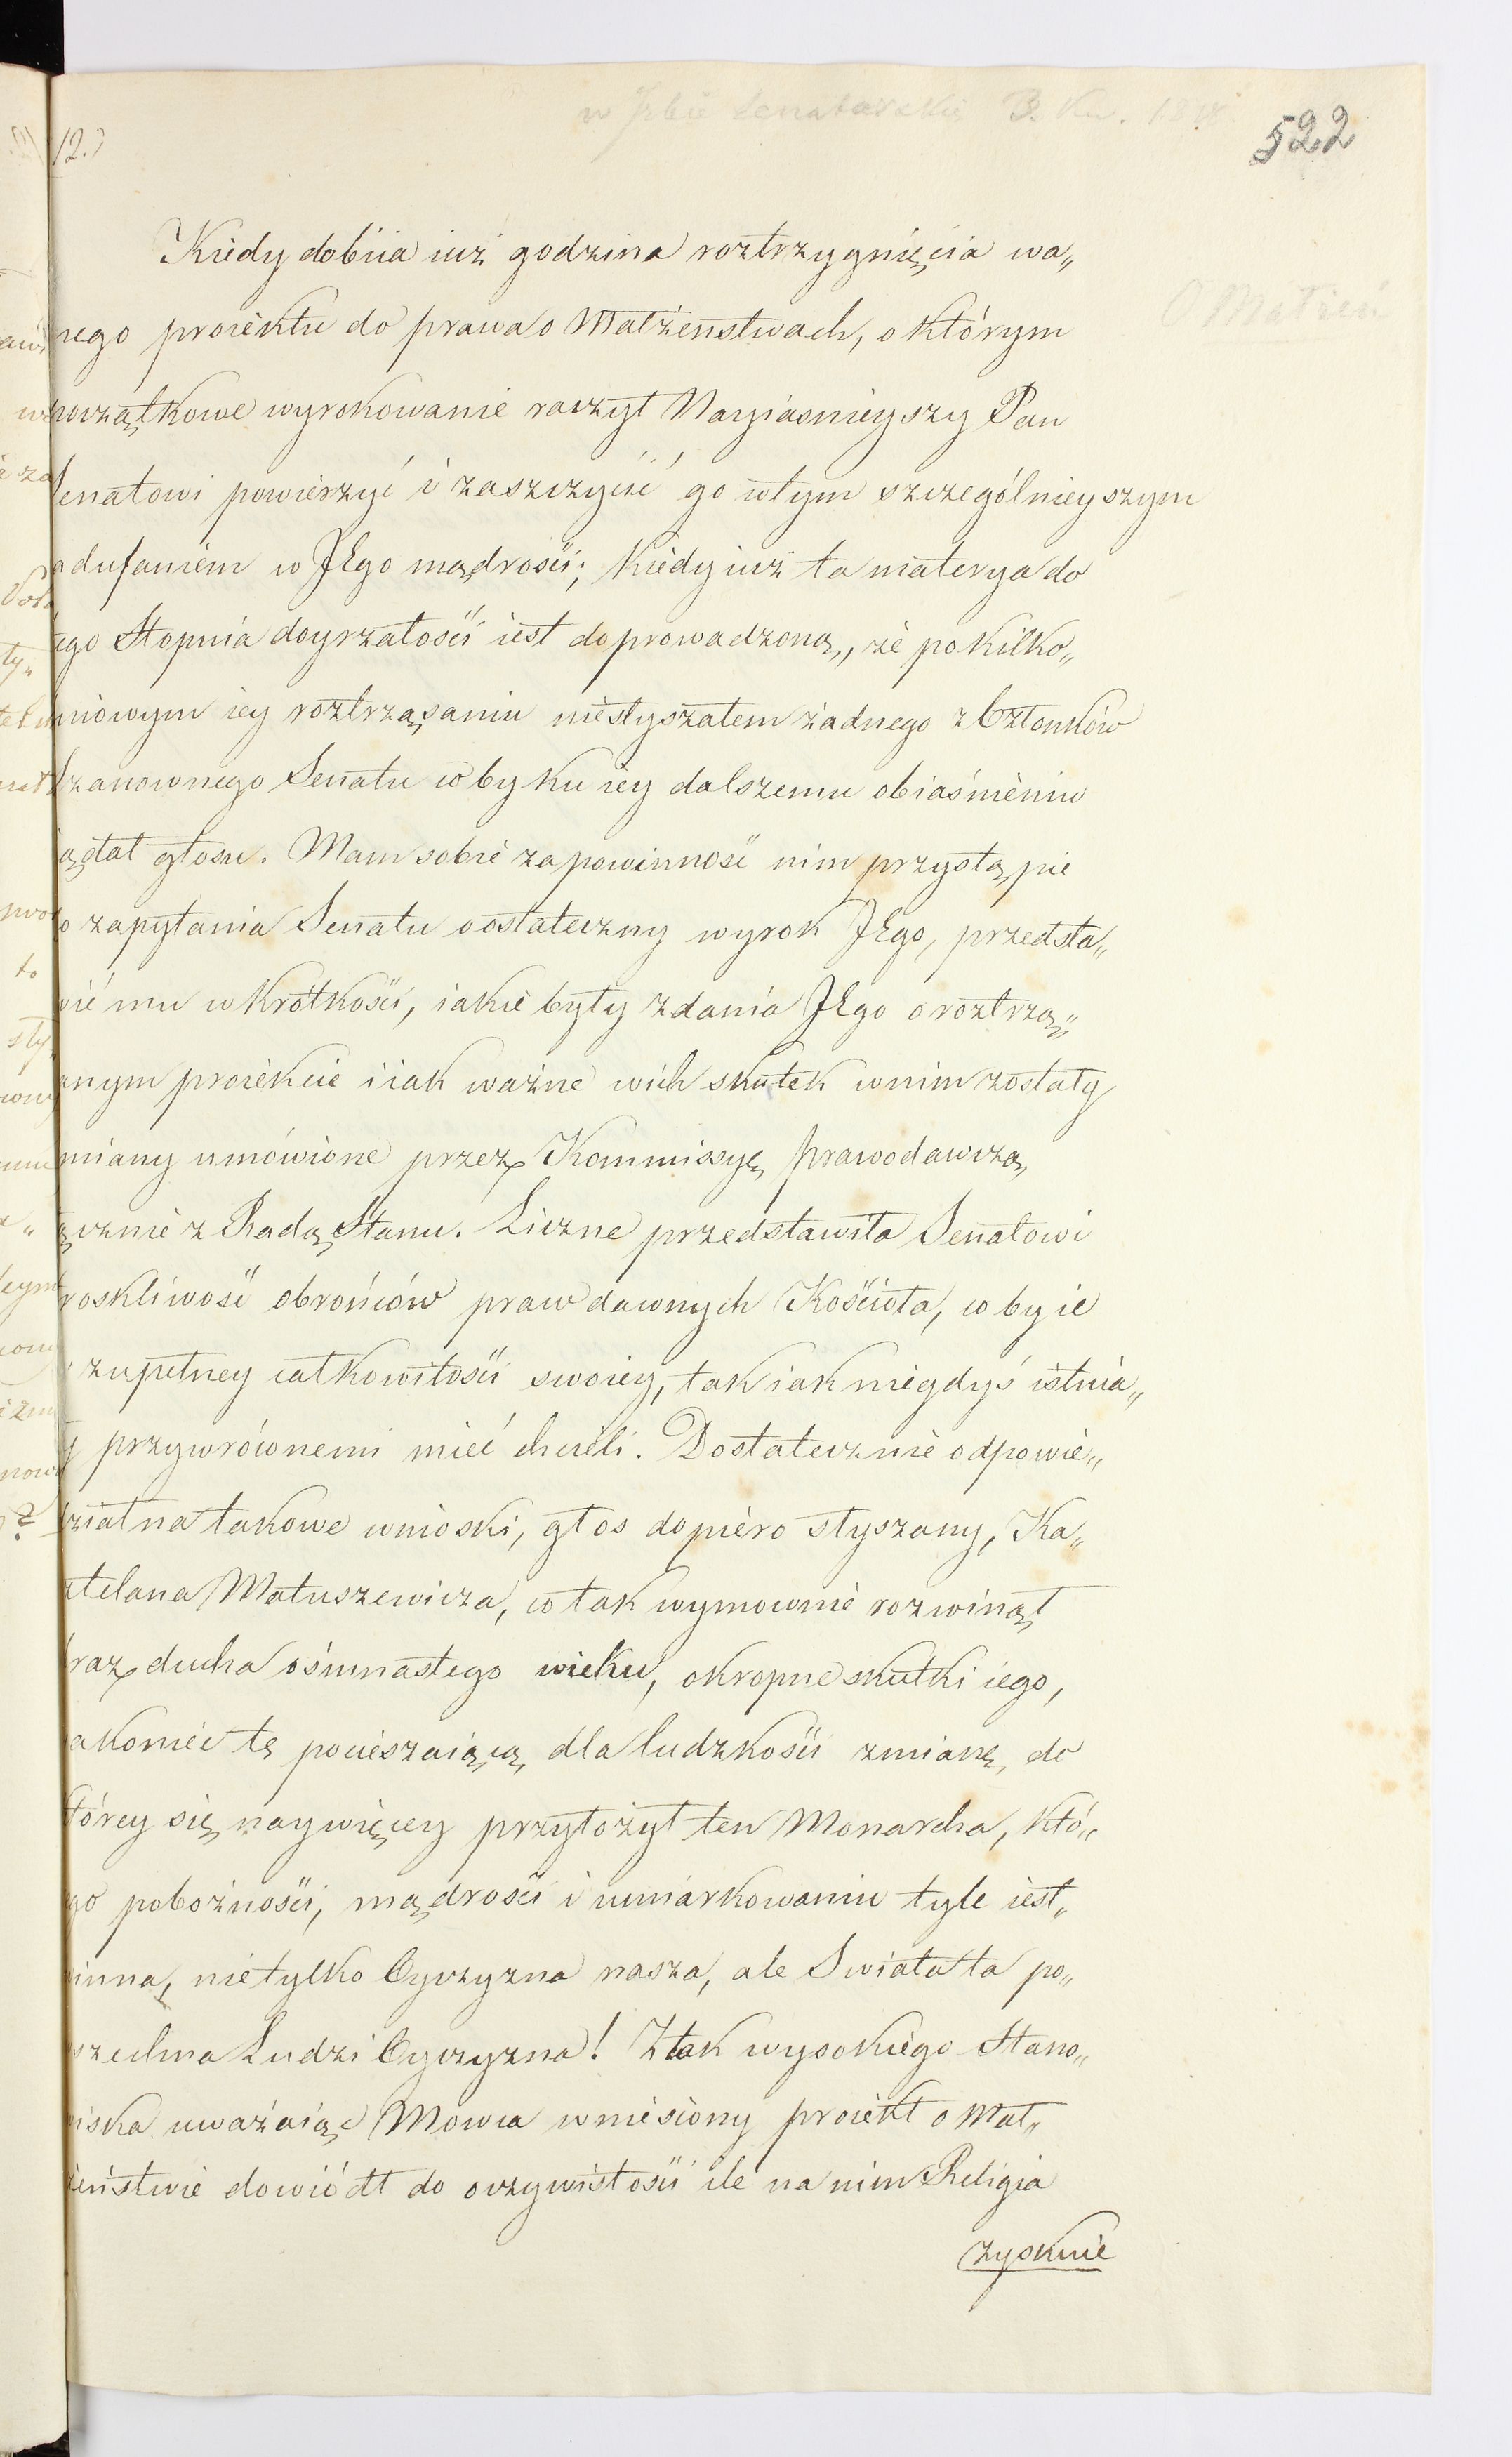 w Izbie Senatorskiey
522
12.)
Kiedy dobiia iuż godzina roztrzygnięcia wa„
O Małżeń
nego proiektu do prawa o Małżeństwach, o którym
początkowe wyrokowanie raczył Nayiasnieyszy Pan
Senatowi powierzyć i zaszczycić go wtym szczególnieyszym
adufaniem w JEgo mądrości; kiedy iuż ta materya do
ego Stopnia doyrzałości iest doprowadzoną, że po kilko„
niowym iey roztrząsaniu niesłyszałem żadnego z Członków
zanownego Senatu coby ku iey dalszemu obiaśnieniu
ądał głosu. Mam sobie za powinność nim przystąpie
o zapytania Senatu o ostateczny wyrok JEgo, przedsta„
wić mu w krótkości, iakie były zdania JEgo o roztrzą„
anym proiekcie i iak ważne wich skutek wnim zostały
miany umówione przez Kommissyę prawodawczą,
ącznie z Radą Stanu. Liczne przedstawiła Senatowi
roskliwość obrońców praw dawnych Kościoła, coby ie
zupełney całkowitości swoiey, tak iak niegdyś istnia„
y przywróconemi mieć chcieli. Dostatecznie odpowie„
dział na takowe wnioski, głos dopiero słyszany, Ka„
ztelana Matuszewicza, co tak wymownie rozwinął
raz ducha ośmnastego wieku, okropne skutki iego,
akoniec tę pocieszaiącą dla ludzkości zmianę, do
tórey się naywięcey przyłożył ten Monarcha, któ„
go pobożności, mądrości i umiarkowaniu tyle iest„
inna, nietylko Oyczyzna nasza, ale Swiata ta po„
szechna Ludzi Oyczyzna! Z tak wysokiego Stano„
iska uważaiąc Mowca wniesiony proiekt o Mał„
żeństwie dowiódł do oczywistości ile na nim Religia
zyskuie